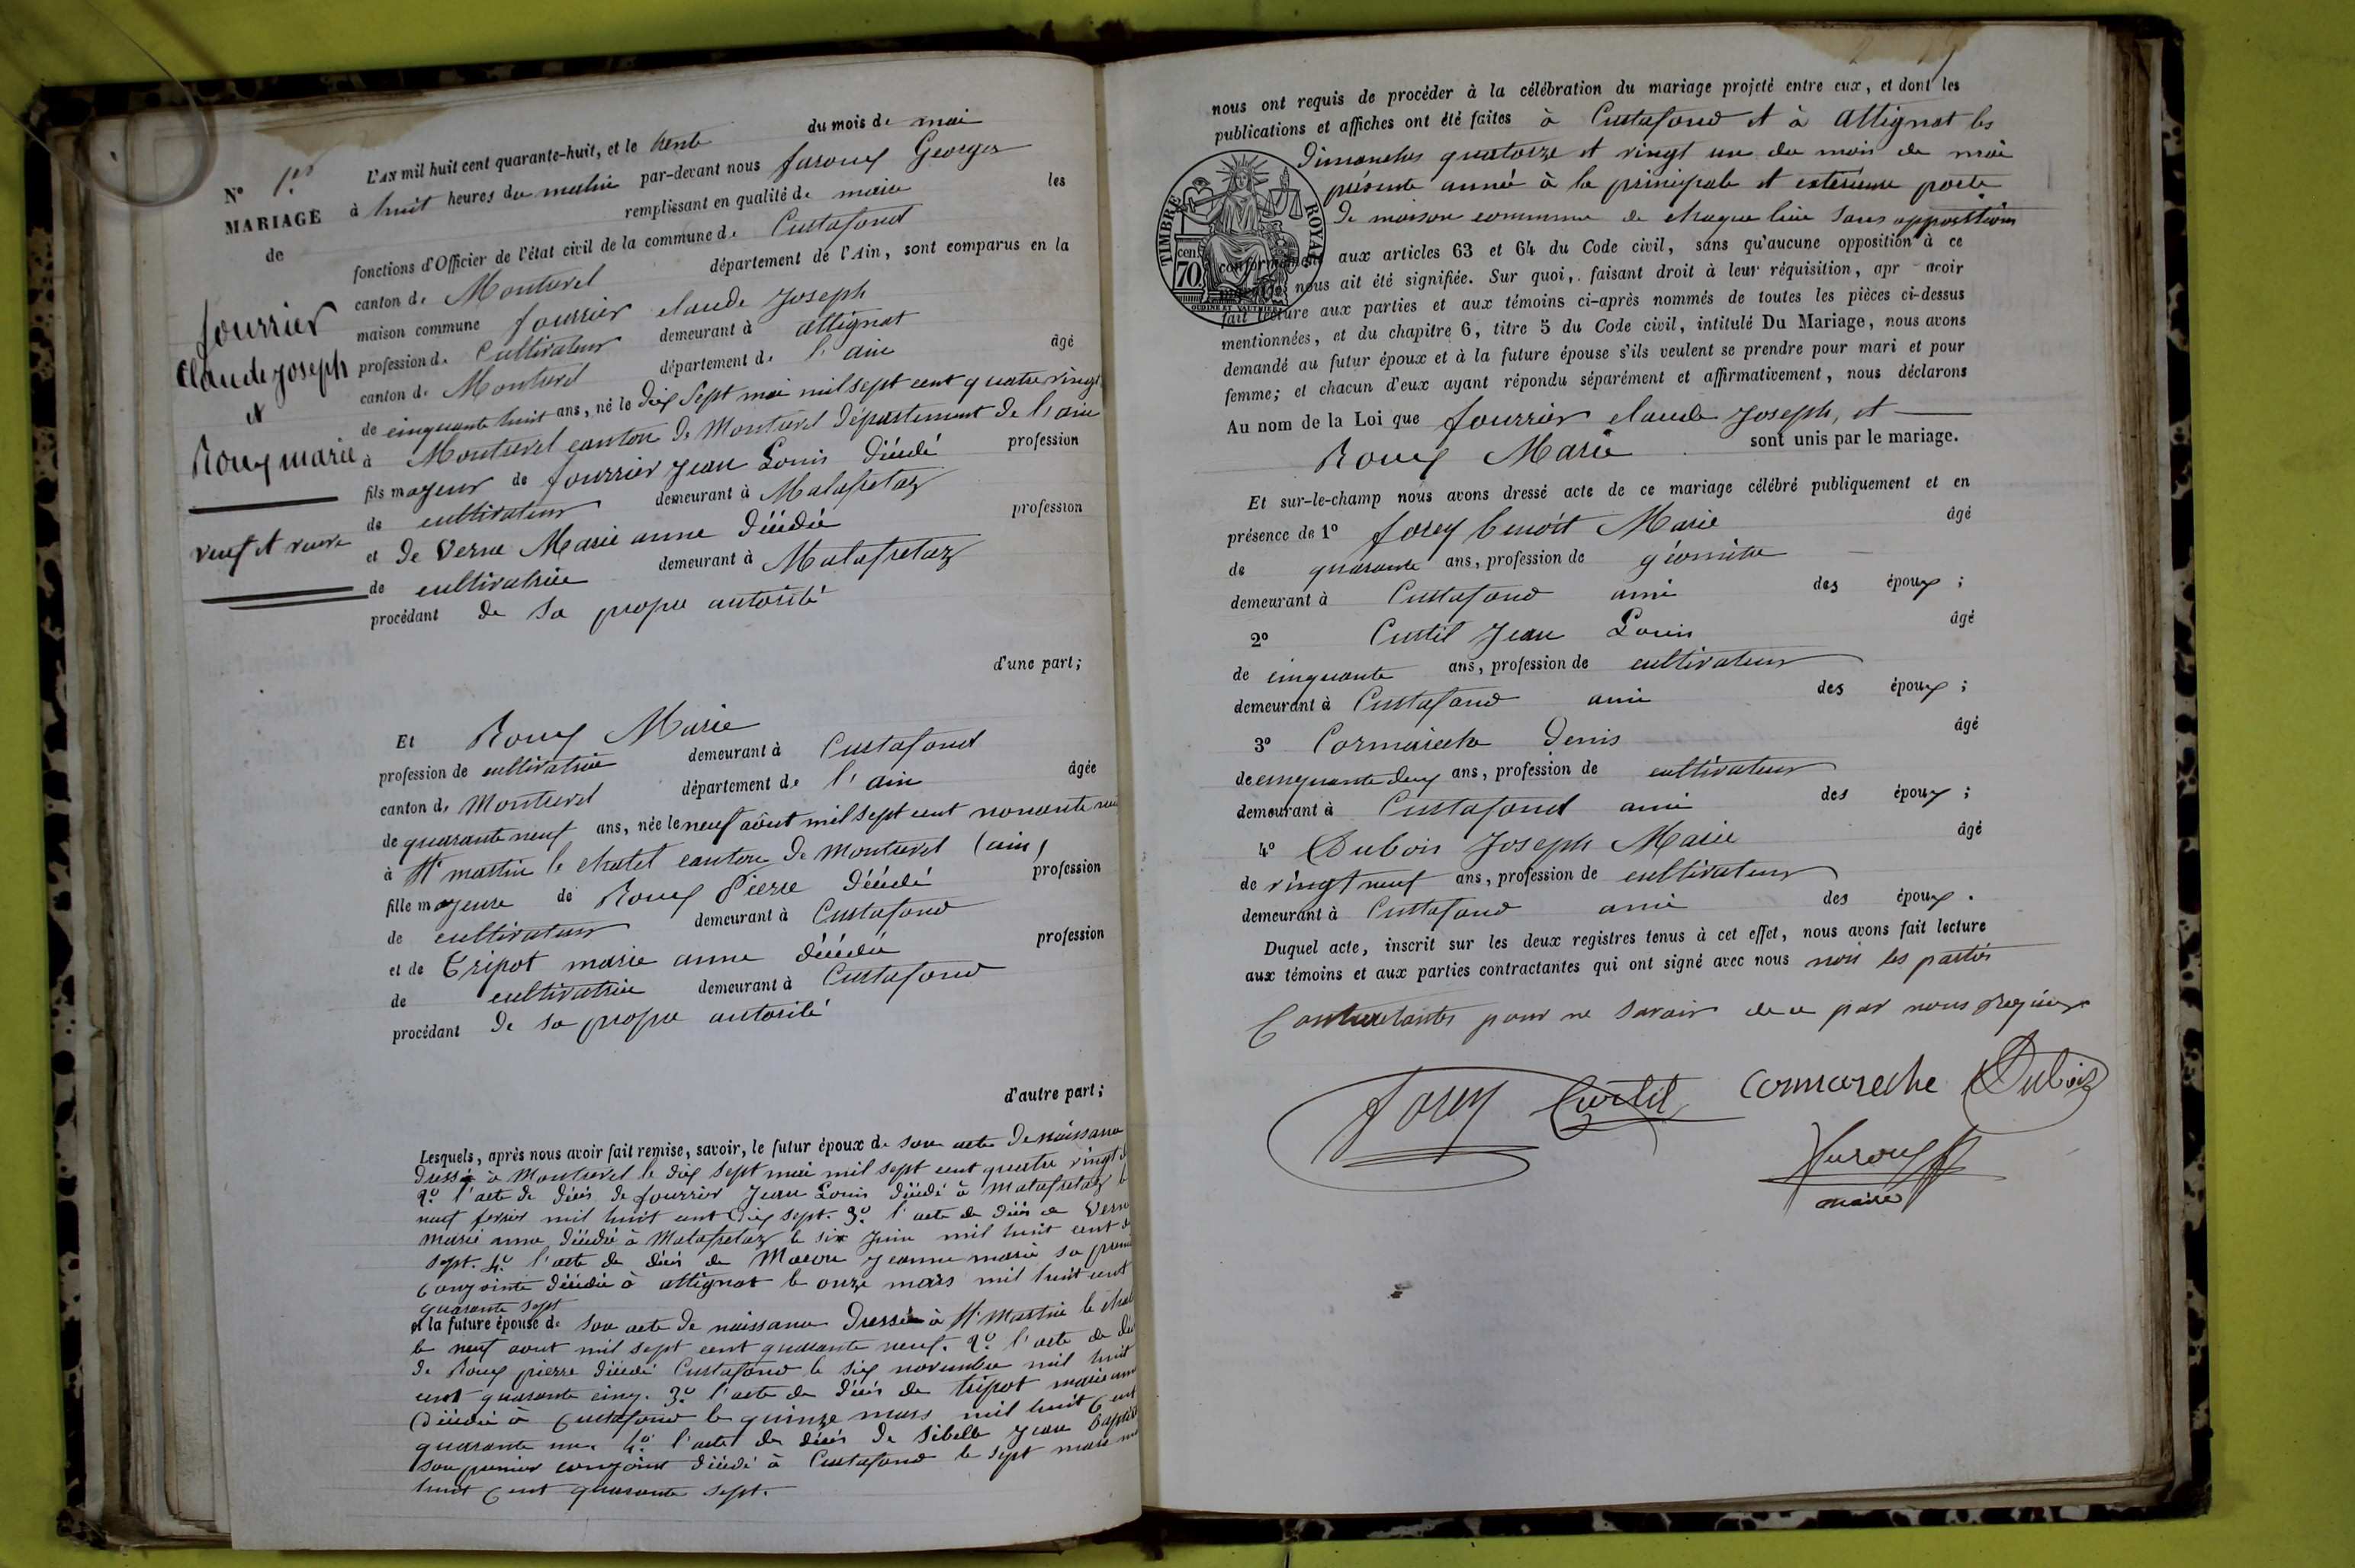 N° 1er
MARIAGE
de
fourrier
Claude joseph
et
Roux marie
veuf et veuve
L'AN mil huit cent quarante-huit, et le trente du mois de mai
à huit heures du matin par-devant nous furoux Georges
remplissant en qualité de maire les
fonctions d'Officier de l'état civil de la commune de Curtafond
canton de Montrevel département de l'Ain, sont comparus en la
maison commune fourrier claude Joseph
profession de Cultivateur demeurant à attignat
canton de Montrevel département de l'ain âgé
de cinquante huit ans, né le dix Sept mai mil sept cent quatre vingt
à Montrevel canton de Montrevel Département de l'ain
fils majeur de fourrier Jean Louis décédé profession
de cultivateur demeurant à Malafretaz
et de Verne Marie anne Décédée profession
de cultivatrice demeurant à Malafretaz
procédant de sa propre autorité
d'une part;
Et Roux Marie
profession de cultivatrice demeurant à Curtafond
canton de Montrevel département de l'ain âgée
de quarante neuf ans, née le neuf aôut mil sept cent nonante
à St martin le chatel canton de Montrevel (ain)
fille majeure de Roux Pierre Décédé profession
de cultivateur demeurant à Curtafond
et de Tripot marie anne décédée profession
de cultivatrice demeurant à Curtafond
procédant De sa propre autorité
d'autre part;
Lesquels, après nous avoir fait remise, savoir, le futur époux de son acte De naissance
Dressé à Montrevel le dix sept mai mil sept cent quatre vingt
2° l'acte de décès de fourrier Jean Louis décédé à Malafretaz le
neuf fevrier mil huit cent Dix sept. 3° l'acte de décès de Verne
marie anne Décédée à Malafretaz le six Juin mil huit cent
sept. 4° l'acte de décès de Jeanne marie sa
Conjointe Décédée à attignat le onze mars mil huit cent
quarante sept
et la future épouse de son acte de naissance Dressé à St Martin le
le neuf aout mil sept cent quarante neuf. 2° l'acte de
de Roux pierre Décédé Curtafond le six novembre mil huit
cent quarante cinq. 3° l'acte de décès de tripot marie anne
Décédée à Curtafond le quinze mars mil huit Cent
quarante un. 4° l'acte de décès de Sibelle Jean Baptiste
son premier conjoint décédé à Curtafond le sept mars
huit Cent quarante sept.
nous ont requis de procéder à la célébration du mariage projeté entre eux, et dont les
publications et affiches ont été faites à Curtafond et à Attignat les
Dimanches quatorze et vingt un du mois de mai
présente année à la principale et extérieure porte
De maison commune de chaque lieu sans opposition
TIMBRE ROYAL
cen. 70
conformément aux articles 63 et 64 du Code civil, sans qu'aucune opposition à ce
mariage nous ait été signifiée. Sur quoi, faisant droit à leur réquisition, apr avoir
fait lecture aux parties et aux témoins ci-après nommés de toutes les pièces ci-dessus
mentionnées, et du chapitre 6, titre 5 du Code civil, intitulé Du Mariage, nous avons
demandé au futur époux et à la future épouse s'ils veulent se prendre pour mari et pour
femme; et chacun d'eux ayant répondu séparément et affirmativement, nous déclarons
Au nom de la Loi que fourrier claude Joseph, et
Roux Marie sont unis par le mariage.
Et sur-le-champ nous avons dressé acte de ce mariage célébré publiquement et en
présence de 1° benoit Marie âgé
de quarante ans, profession de géomètre
demeurant à Curtafond ami des époux;
2° Curtil Jean Louis âgé
de cinquante ans, profession de cultivateur
demeurant à Curtafond ami des époux;
3° Cormareche Denis âgé
de cinquante deux ans, profession de cultivateur
demeurant à Curtafond ami des époux;
4° Dubois Joseph Marie âgé
de vingt neuf ans, profession de cultivateur
demeurant à Curtafond ami des époux.
Duquel acte, inscrit sur les deux registres tenus à cet effet, nous avons fait lecture
aux témoins et aux parties contractantes qui ont signé avec nous non les parties
Contractantes pour ne savoir de ce par nous
Curtil Cormareche Dubois
furoux
maire